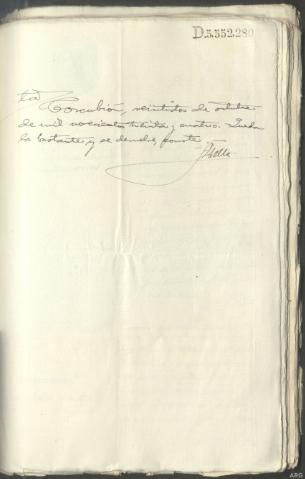 D.5.552.280
ta Corcubión, veintidos de octubre
de mil novecientos treinta y cuatro. Queda
la bastante y se devolvió, conste
ARG